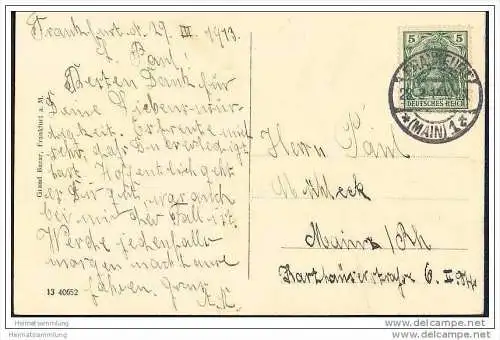 Frankfurt d. 29. III. 1913.
L. Paul!
Besten Dank für
Deine Liebenswür-
digkeit. Erfreute mich
sehr, daß Du es erledigt
hast. Hoffentlich geht
es Dir gut, was auch
bei mir der Fall ist.
Werde jedenfalls
morgen nach Hause
fahren. Gruss
A. K.
Grand Bazar, Frankfurt a. M.
13 40652
5 5
DEUTSCHES REICH
FRANKFURT
* (MAIN) 1 *
Herrn Paul
Mainz/Rh
Karthäuserstraße 6. II.
Heimatsammlung
Heimatsammlung
Heimatsammlung
Heimatsammlung